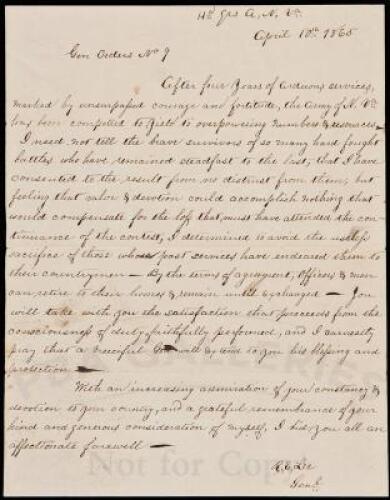 Hd Qrs A. N. Va
April 10th 1865
Gen Orders No 9
After four Years of arduous services,
marked by unsurpassed courage and fortitude, the Army of N. Va
has been compelled to yield to overpowering numbers & resources—
I need not tell the brave survivors of so many hard fought
battles who have remained steadfast to the last, that I have
consented to the result from no distrust from them, but
feeling that valor & devotion could accomplish nothing that
would compensate for the loss that must have attended the con-
tinuance of the contest, I determined to avoid the useless
sacrifice of those whose past services have endeared them to
their countrymen — By the terms of agreement, Officers & men
can retire to their homes & remain until exchanged — You
will take with you the satisfaction that proceeds from the
consciousness of duty faithfully performed, and I earnestly
pray that a merciful God will extend to you his blessing and
protection —
With an increasing admiration of your constancy &
devotion to your country, and a grateful remembrance of your
kind and generous consideration of myself, I bid you all an
affectionate farewell —
R. E. Lee
Genl.
Not for Copy